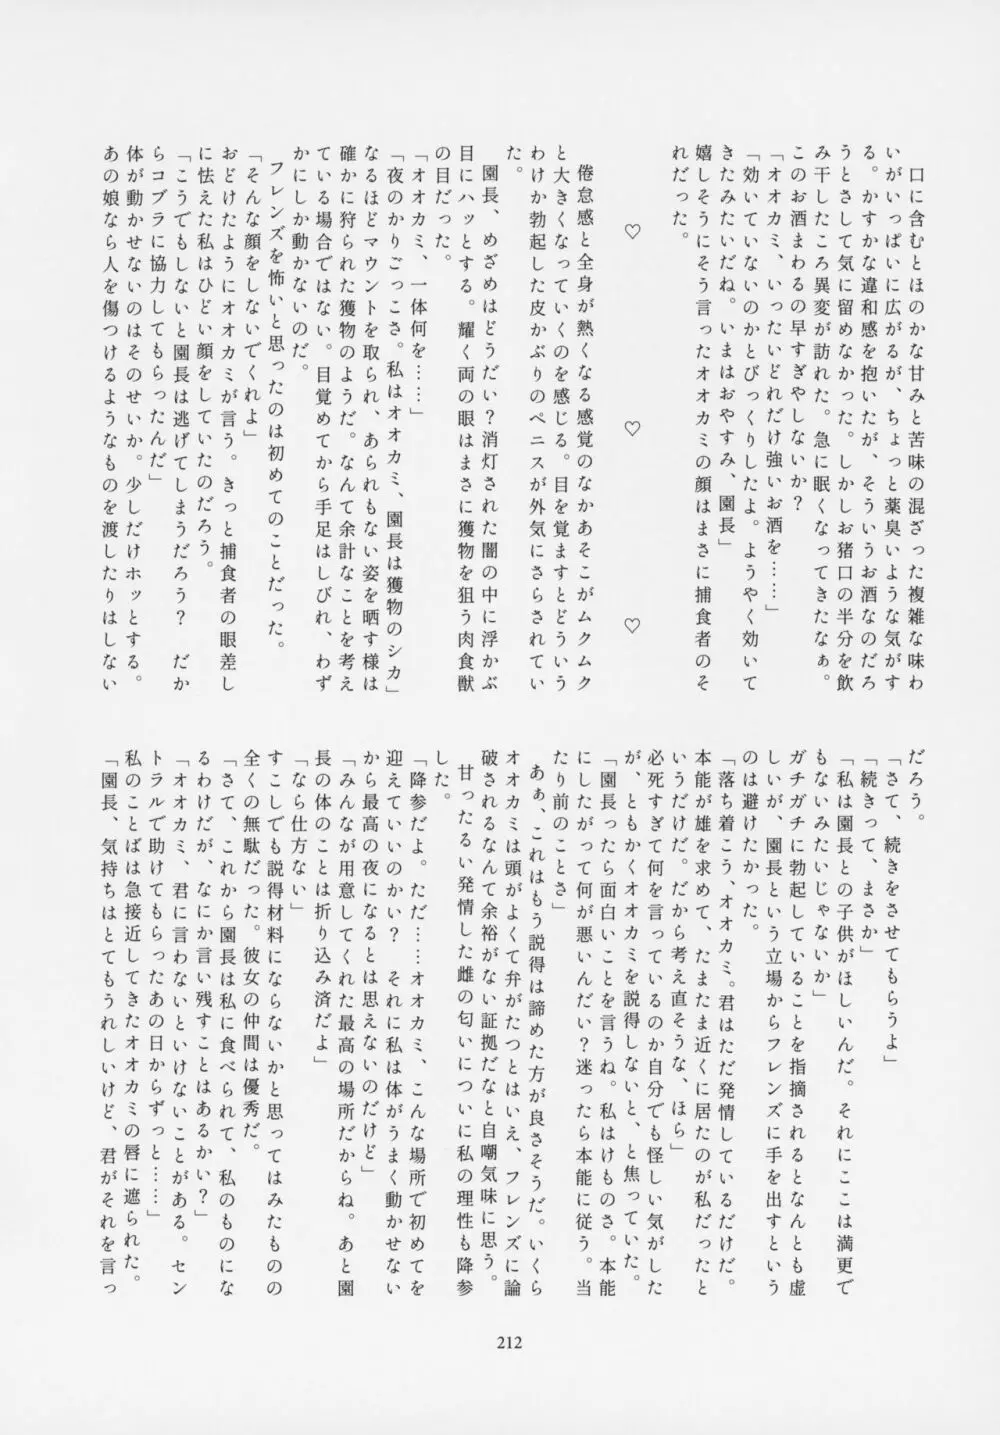 口に含むとほのかな甘みと苦味の混ざった複雑な味わ
いがいっぱいに広がるが、ちょっと薬臭いような気がす
る。かすかな違和感を抱いたが、そういうお酒なのだろ
うとさして気に留めなかった。しかしお猪口の半分を飲
み干したころ異変が訪れた。急に眠くなってきたなぁ。
このお酒まわるの早すぎやしないか？
「オオカミ、いったいどれだけ強いお酒を……」
「効いていないのかとびっくりしたよ。ようやく効いて
きたみたいだね。いまはおやすみ、園長」
嬉しそうにそう言ったオオカミの顔はまさに捕食者のそ
れだった。
♡　♡　♡
倦怠感と全身が熱くなる感覚のなかあそこがムクムク
と大きくなっていくのを感じる。目を覚ますとどういう
わけか勃起した皮かぶりのペニスが外気にさらされてい
た。
園長、めざめはどうだい？消灯された闇の中に浮かぶ
目にハッとする。耀く両の眼はまさに獲物を狙う肉食獣
の目だった。
「オオカミ、一体何を……」
「夜のかりごっこさ。私はオオカミ、園長は獲物のシカ」
なるほどマウントを取られ、あられもない姿を晒す様は
確かに狩られた獲物のようだ。なんて余計なことを考え
ている場合ではない。目覚めてから手足はしびれ、わず
かにしか動かないのだ。
フレンズを怖いと思ったのは初めてのことだった。
「そんな顔をしないでくれよ」
おどけたようにオオカミが言う。きっと捕食者の眼差し
に怯えた私はひどい顔をしていたのだろう。
「こうでもしないと園長は逃げてしまうだろう？　だか
らコブラに協力してもらったんだ」
体が動かせないのはそのせいか。少しだけホッとする。
あの娘なら人を傷つけるようなものを渡したりはしない
だろう。
「さて、続きをさせてもらうよ」
「続きって、まさか」
「私は園長との子供がほしいんだ。それにここは満更で
もないみたいじゃないか」
ガチガチに勃起していることを指摘されるとなんとも虚
しいが、園長という立場からフレンズに手を出すという
のは避けたかった。
「落ち着こう、オオカミ。君はただ発情しているだけだ。
本能が雄を求めて、たまたま近くに居たのが私だったと
いうだけだ。だから考え直そうな、ほら」
必死すぎて何を言っているのか自分でも怪しい気がした
が、ともかくオオカミを説得しないと、と焦っていた。
「園長ったら面白いことを言うね。私はけものさ。本能
にしたがって何が悪いんだい？迷ったら本能に従う。当
たり前のことさ」
あぁ、これはもう説得は諦めた方が良さそうだ。いくら
オオカミは頭がよくて弁がたつとはいえ、フレンズに論
破されるなんて余裕がない証拠だなと自嘲気味に思う。
甘ったるい発情した雌の匂いについに私の理性も降参
した。
「降参だよ。ただ……オオカミ、こんな場所で初めてを
迎えていいのかい？　それに私は体がうまく動かせない
から最高の夜になるとは思えないのだけど」
「みんなが用意してくれた最高の場所だからね。あと園
長の体のことは折り込み済だよ」
「なら仕方ない」
すこしでも説得材料にならないかと思ってはみたものの
全くの無駄だった。彼女の仲間は優秀だ。
「さて、これから園長は私に食べられて、私のものにな
るわけだが、なにか言い残すことはあるかい？」
「オオカミ、君に言わないといけないことがある。セン
トラルで助けてもらったあの日からずっと……」
私のことばは急接近してきたオオカミの唇に遮られた。
「園長、気持ちはとてもうれしいけど、君がそれを言っ
212